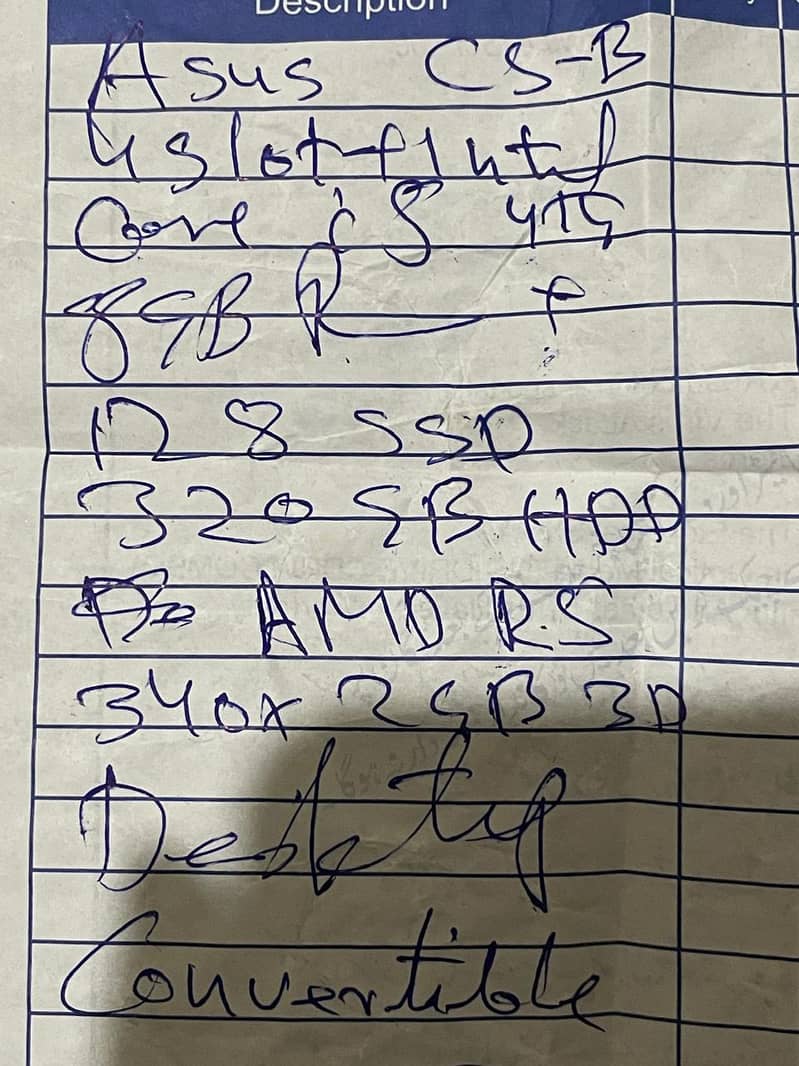 Description
Asus CS-B
4 Slot + Intel
Core i5 4TG
8GB R +
128 SSD
320 GB HDD
AMD R.5
340X 2GB 3D
Desktop
Convertible